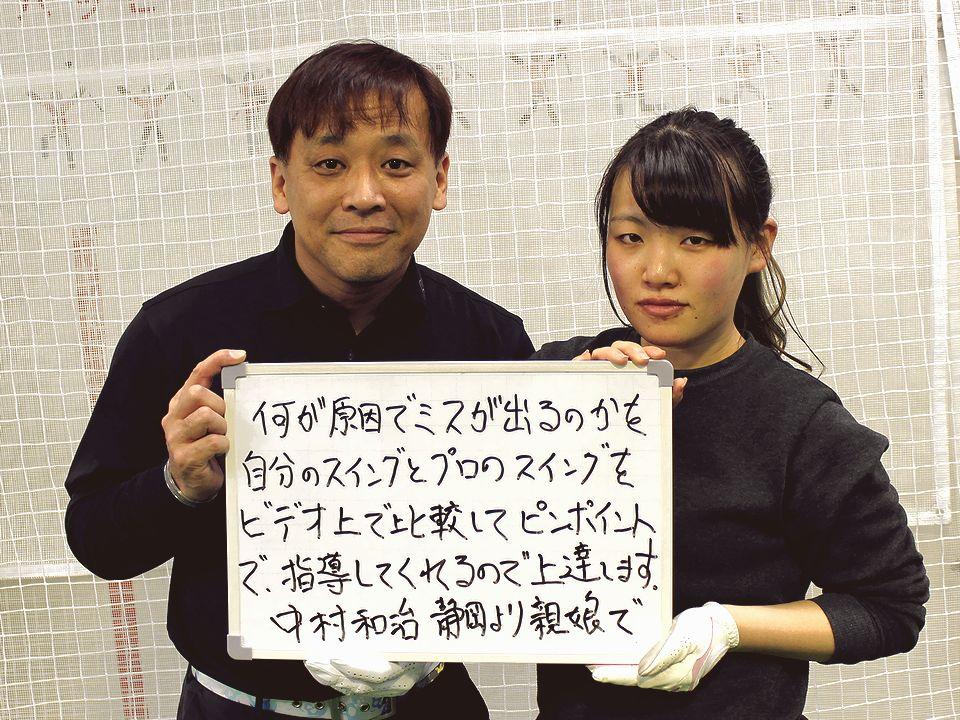 何が原因でミスが出るのかを
自分のスイングとプロのスイングを
ビデオ上で比較してピンポイント
で、指導してくれるので上達します。
中村和治 静岡より親娘で